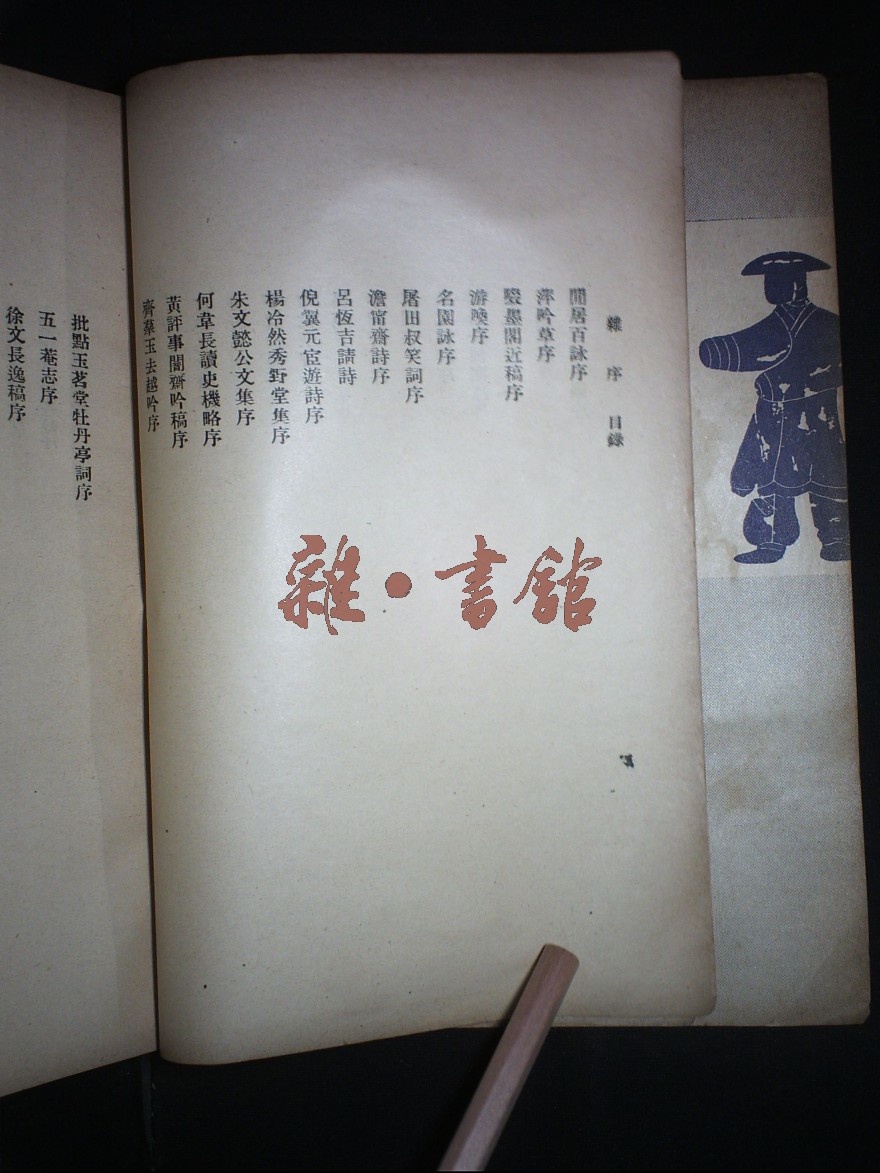 雜序目錄
閒居百詠序
萍吟草序
駿墨閣近稿序
游喚序
名園詠序
屠田叔笑詞序
澹甯齋詩序
呂恆吉請詩
倪翼元宦遊詩序
楊冷然秀野堂集序
朱文懿公文集序
何韋長讀史機略序
黃評事闇齋吟稿序
齊羣玉去越吟序
批點玉茗堂牡丹亭詞序
五一菴志序
徐文長逸稿序
雜·書館